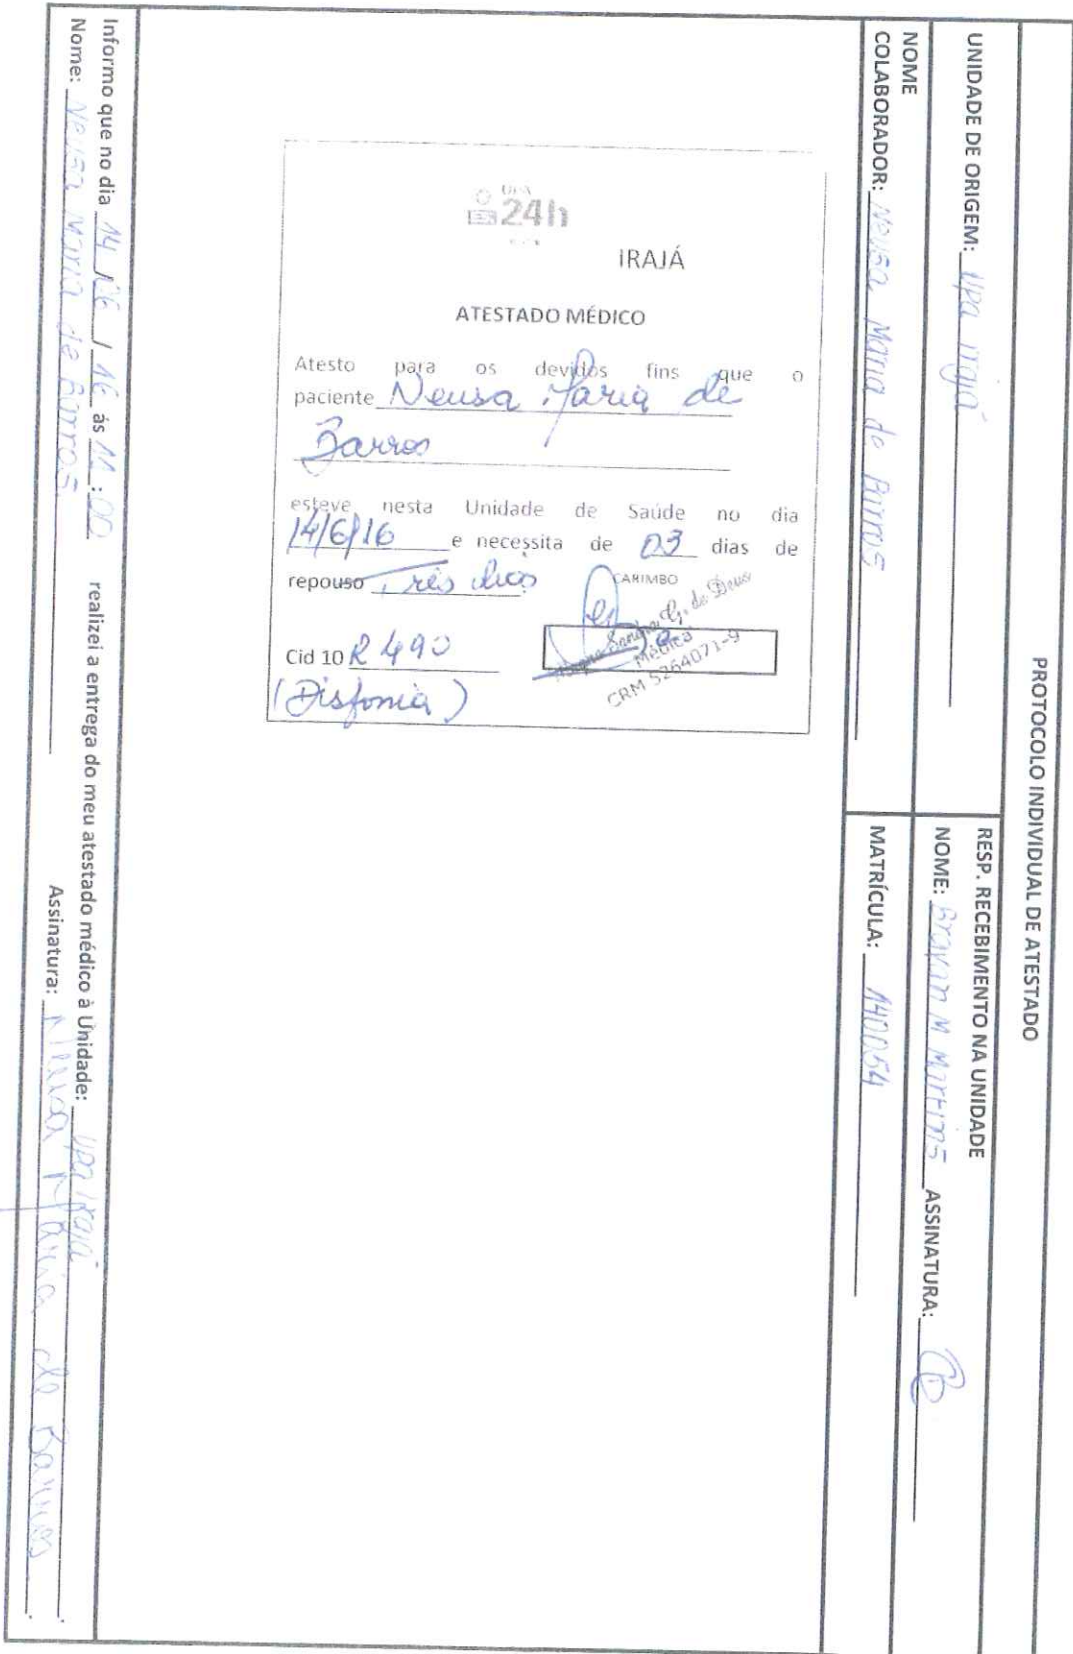 PROTOCOLO INDIVIDUAL DE ATESTADO
UNIDADE DE ORIGEM: UPA Irajá
RESP. RECEBIMENTO NA UNIDADE
NOME: M Martins ASSINATURA:
NOME
COLABORADOR: Neusa Maria de Barros
MATRÍCULA: 140054
UPA
24h
IRAJÁ
ATESTADO MÉDICO
Atesto para os devidos fins que o
paciente Neusa Maria de
Barros
esteve nesta Unidade de Saúde no dia
14/6/16 e necessita de 03 dias de
repouso Três dias
CARIMBO
G. de Deus
Médica
CRM 5264071-9
Cid 10 R 490
(Disfonia)
Informo que no dia 14 / 06 / 16 ás 11:00 realizei a entrega do meu atestado médico à Unidade: UPA Irajá
Nome: Neusa Maria de Barros Assinatura: Neusa Maria de Barros